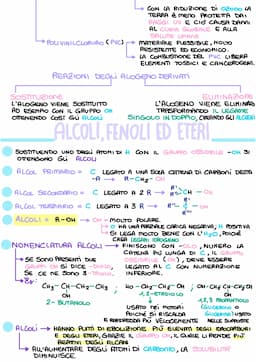 → CON LA RIDUZIONE DI OZONO LA
TERRA È MENO PROTETTA DAI
RAGGI UV E CIÒ CAUSA DANNI
AL CLIMA GLOBALE E ALLA
SALUTE UMANA
→ POLIVINILCLORURO (PVC) → MATERIALE FLESSIBILE, NUOVO
RESISTENTE ED ECONOMICO.
→ LA COMBUSTIONE DEL PVC LIBERA
ELEMENTI TOSSICI E CANCEROGENI.
REAZIONI DEGLI ALOGENODERIVATI
SOSTITUZIONE
L'ALOGENO VIENE SOSTITUITO
AD ESEMPIO CON IL GRUPPO OH
OTTENENDO COSÌ GLI ALCOLI
ELIMINAZIONE
L'ALOGENO VIENE ELIMINATO
TRASFORMANDO IL LEGAME
SINGOLO IN DOPPIO, CREANDO GLI ALCHENI
ALCOLI, FENOLI ED ETERI
SOSTITUENDO UNO DEGLI ATOMI DI H CON IL GRUPPO OSSIDRILE -OH SI
OTTENGONO GLI ALCOLI
ALCOL PRIMARIO = C LEGATO A UNA SOLA CATENA DI CARBONI DETTA
-R → R-CH₂-OH
ALCOL SECONDARIO = C LEGATO A 2 R →
CH - OH
ALCOL TERZIARIO = C LEGATO A 3 R →
C - OH
ALCOLI = R-OH → OH = MOLTO POLARE.
O HA UNA PARZIALE CARICA NEGATIVA, H POSITIVA
SI LEGA MOLTO BENE CON L'H₂O, POICHÉ
CREA LEGAMI IDROGENO
NOMENCLATURA ALCOLI → FINISCONO CON -OLO, NUMERO LA
CATENA PIÙ LUNGA DI C, IL GRUPPO
OSSIDRILE (OH), DEVE ESSERE
LEGATO AL C CON NUMERAZIONE
INFERIORE.
SE SONO PRESENTI DUE
GRUPPI OH SI DICE -DIOLO,
SE CE NE SONO 3 -TRIOLO.
Es:
CH₃-CH-CH₂-CH₃
OH
2-BUTANOLO
CH₂-CH₂
OH OH
1,2-ETANDIOLO
HO-CH₂-CH-CH₂-OH
OH
1,2,3 PROPANTRIOLO
(GLICEROLO)
USATO NEI MOTORI
POICHÉ SI RISCALDA
E RAFFREDDA PIÙ VELOCEMENTE
ALCOLI → HANNO PUNTI DI EBOLLIZIONE PIÙ ELEVATI DEGLI IDROCARBURI
E DEGLI ETERI, GRAZIE IL GRUPPO OH, IL QUALE LI RENDE PIÙ
REATTIVI DEGLI ALCANI
→ ALL'AUMENTARE DEGLI ATOMI DI CARBONIO, LA SOLUBILITÀ
DIMINUISCE.